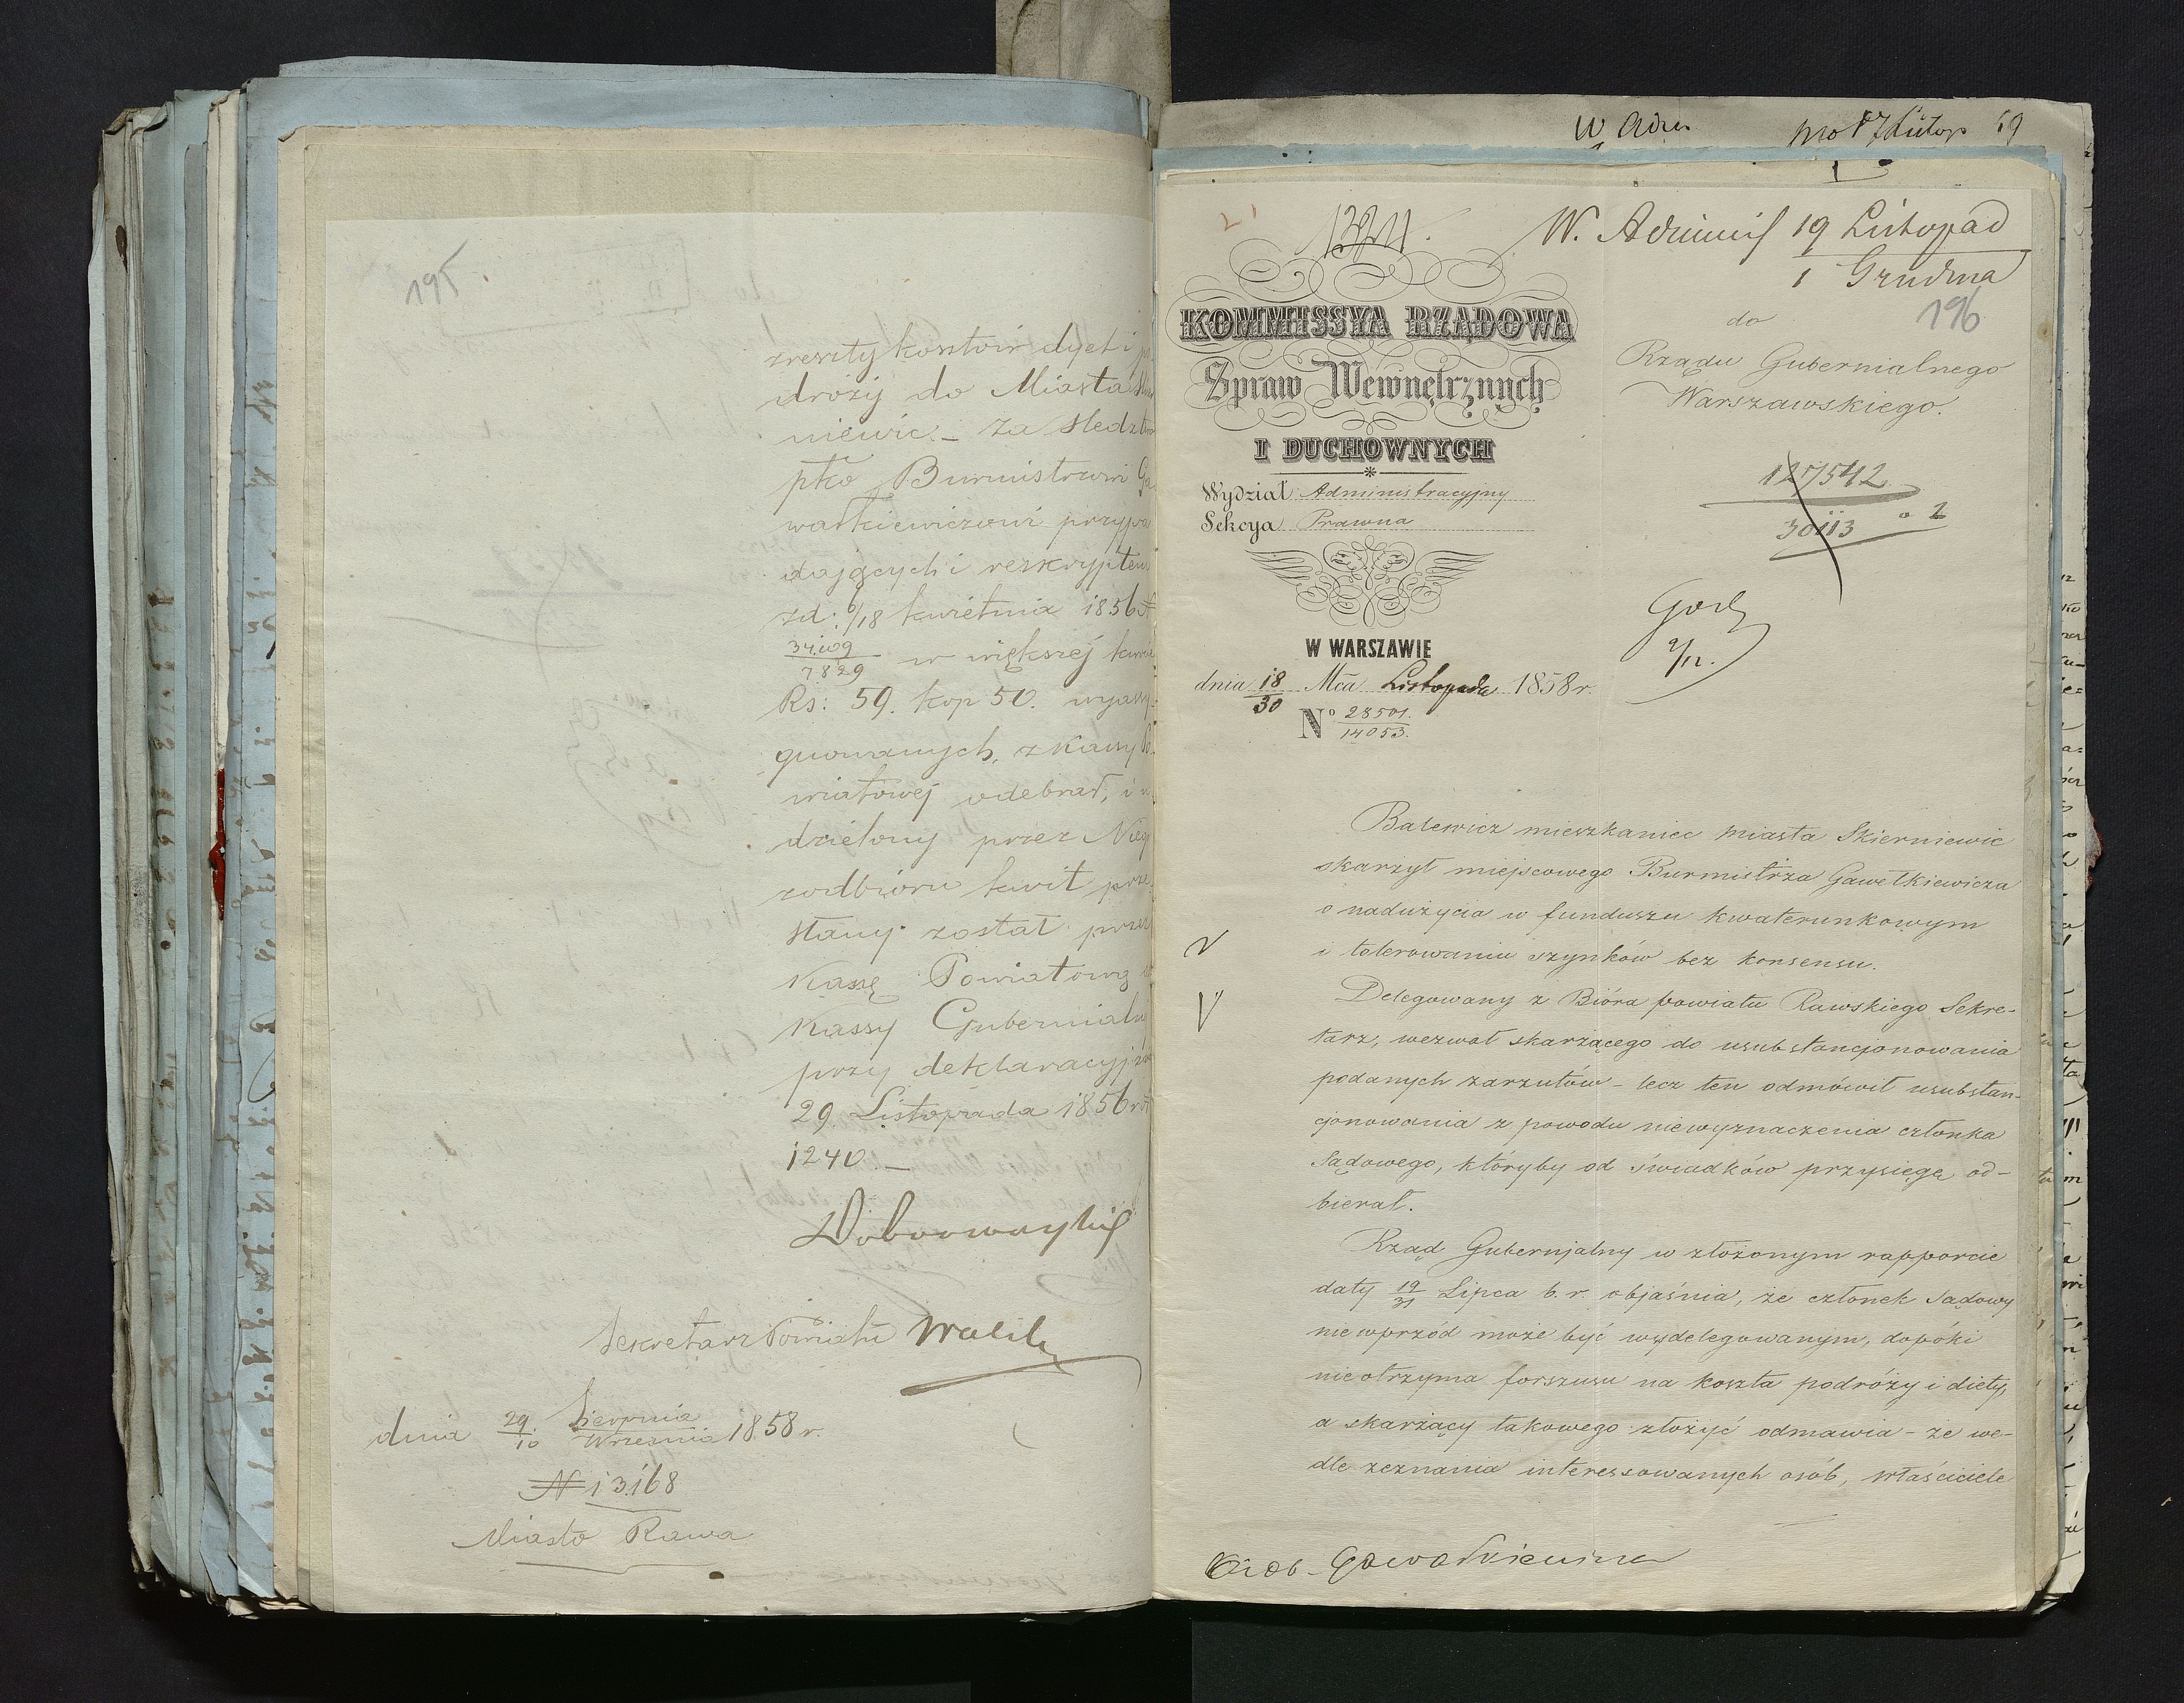 195.
zreszty kosztów dyet i
dróży do Miasta
niewic – za śledz
pko Burmistrzowi
wałkiewiczowi przypa
dających i reskryptem
zd: 6/18 kwietnia 1856
34,009
7829
w większej
Rs: 59. kop 50. wyassy
gnowanych, z kassy
wiatowej odebrał, i
dzielony przez
zodbioru kwit prze
słany został przez
Kassę Powiatową
Kassy Gubernialn
przy deklaracyj
29 Listopada 1856
1240. –
Sekretarz Powiatu
dnia 29/10 Sierpnia/Września 1858 r.
N 13168
Miasto Rawa
W. Adminis 19 Listopad
1 Grudnia
196
do
Rządu Gubernialnego
Warszawskiego.
KOMMISSYA RZĄDOWA
Spraw Wewnętrznych
I DUCHOWNYCH
Wydział Administracyjny
Sekcya Prawna
127542
30113
W WARSZAWIE
dnia 18/30 Mca Listopada 1858 r.
No 28501./14053.
Balewicz mieszkaniec miasta Skierniewic
skarżył miejscowego Burmistrza Gawełkiewicza
o nadużycia w funduszu kwaterunkowym
i tolerowaniu szynków bez konsensu.
Delegowany z Bióra powiatu Rawskiego Sekre-
tarz, wezwał skarżącego do usubstancjonowania
podanych zarzutów – lecz ten odmówił usubstan-
cjonowania z powodu niewyznaczenia członka
Sądowego, któryby od świadków przysięgę od-
bierał.
Rząd Gubernjalny w złożonym rapporcie
daty 19/31 Lipca b. r. objaśnia, że członek Sądowy
nie wprzód może być wydelegowanym, dopóki
nie otrzyma forszusu na koszta podróży i diety,
a skarżący takowego złożyć odmawia – że we-
dle zeznania interessowanych osób, właściciele